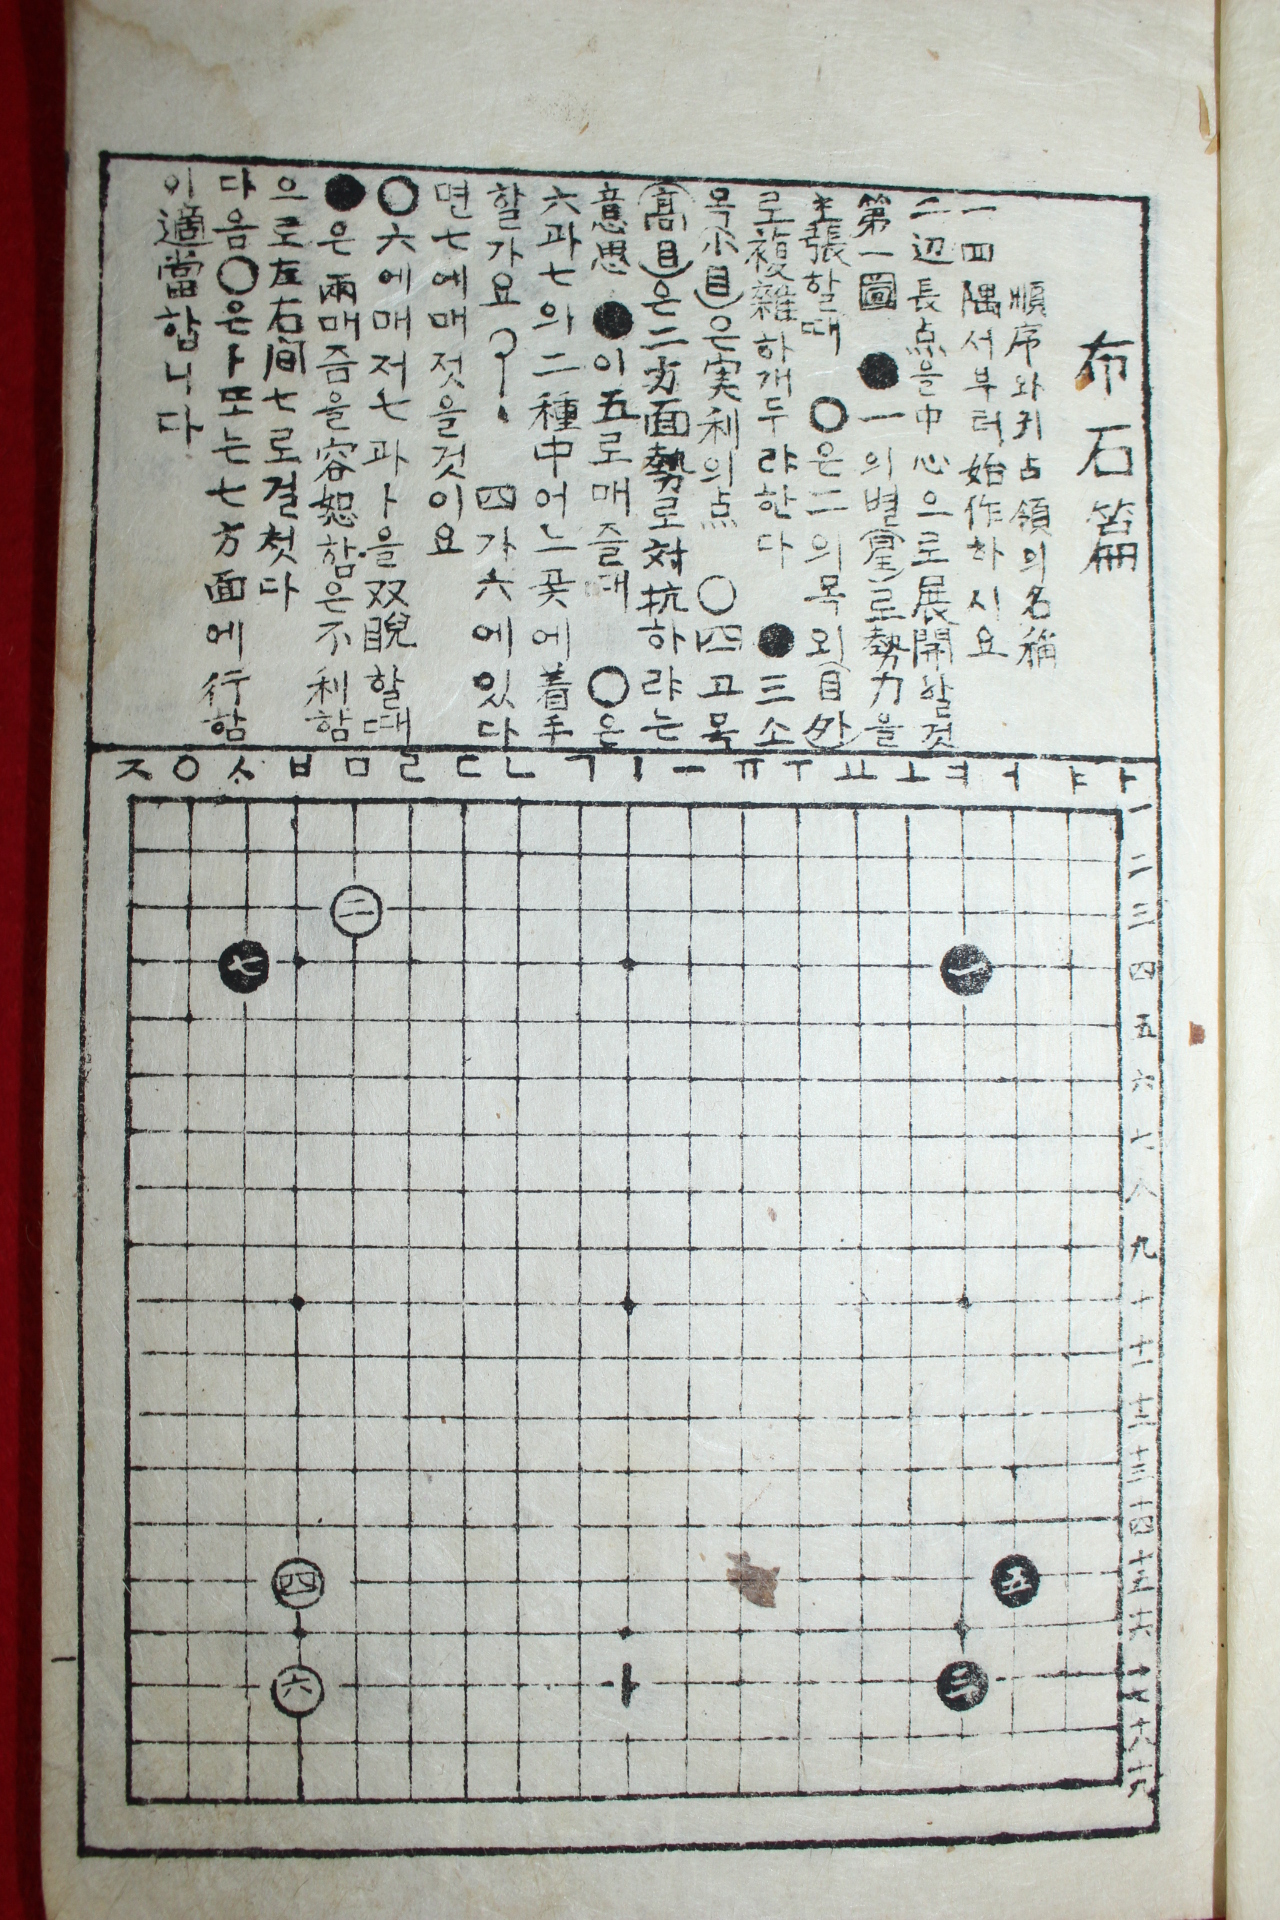 布石篇
順序와귀占領의名稱
一四隅서부터始作하시요
二辺長点을中心으로展開할것
第一圖 ●一의별(星)로勢力을
主張할때 ○은二의목외(目外)
로複雜하개두랴한다 ●三소
목(小目)은実利의点 ○四고목
(高目)은二方面勢로対抗하랴는
意思 ●이五로매즐때 ○은
六과七의二種中어느곳에着手
할가요? 四가六에있다
면七에매젓을것이요
○六에매저七과ㅏ을双睨할때
●은兩매즘을容恕함은不利함
으로左右间七로걸첫다
다음○은ㅏ又는七方面에行함
이適當합니다
ㅈㅇㅅㅂㅁㄹㄷㄴㄱㅣㅡㅠㅜㅛㅗㅕㅓㅑㅏ
一
二
三
四
五
六
七
八
九
十
十一
十二
十三
十四
十五
十六
十七
十八
十九
二
七
一
四
五
六
ㅏ
三
一